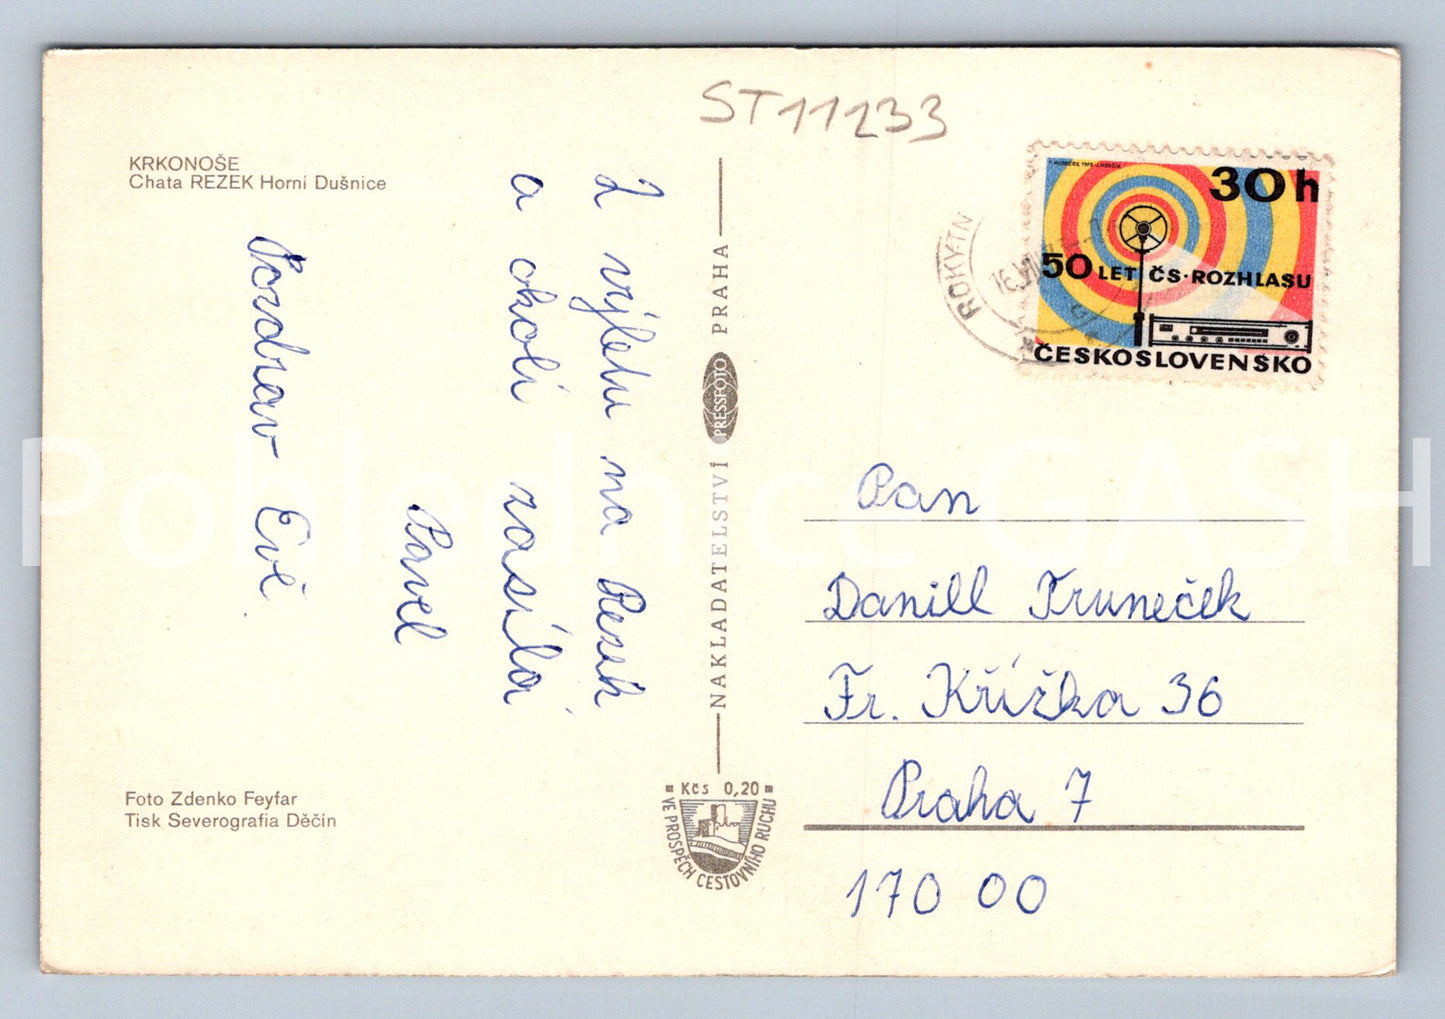 ST11233
KRKONOŠE
Chata REZEK Horní Dušnice
Z výletu na Rezek
a okolí zasílá
Pavel
Pozdrav Evě.
Foto Zdenko Feyfar
Tisk Severografia Děčín
NAKLADATELSTVÍ PRESSFOTO PRAHA
Kčs 0,20
VE PROSPĚCH CESTOVNÍHO RUCHU
ROKYTN
16.
30h
50 LET ČS·ROZHLASU
ČESKOSLOVENSKO
Pan
Danill Truneček
Fr. Křížka 36
Praha 7
170 00
Pohlednice GASH